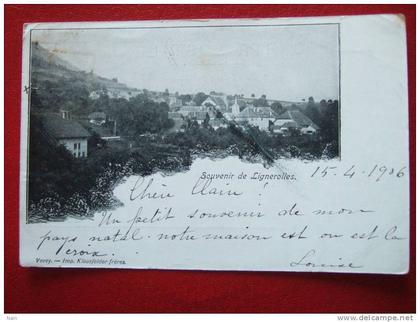 Souvenir de Lignerolles.
15-4-1906
Chère Clair !
Un petit souvenir de mon
pays natal. notre maison est ou est la
croix.
Louise
Vevey. — Imp. Klausfelder frères.
www.delcampe.net